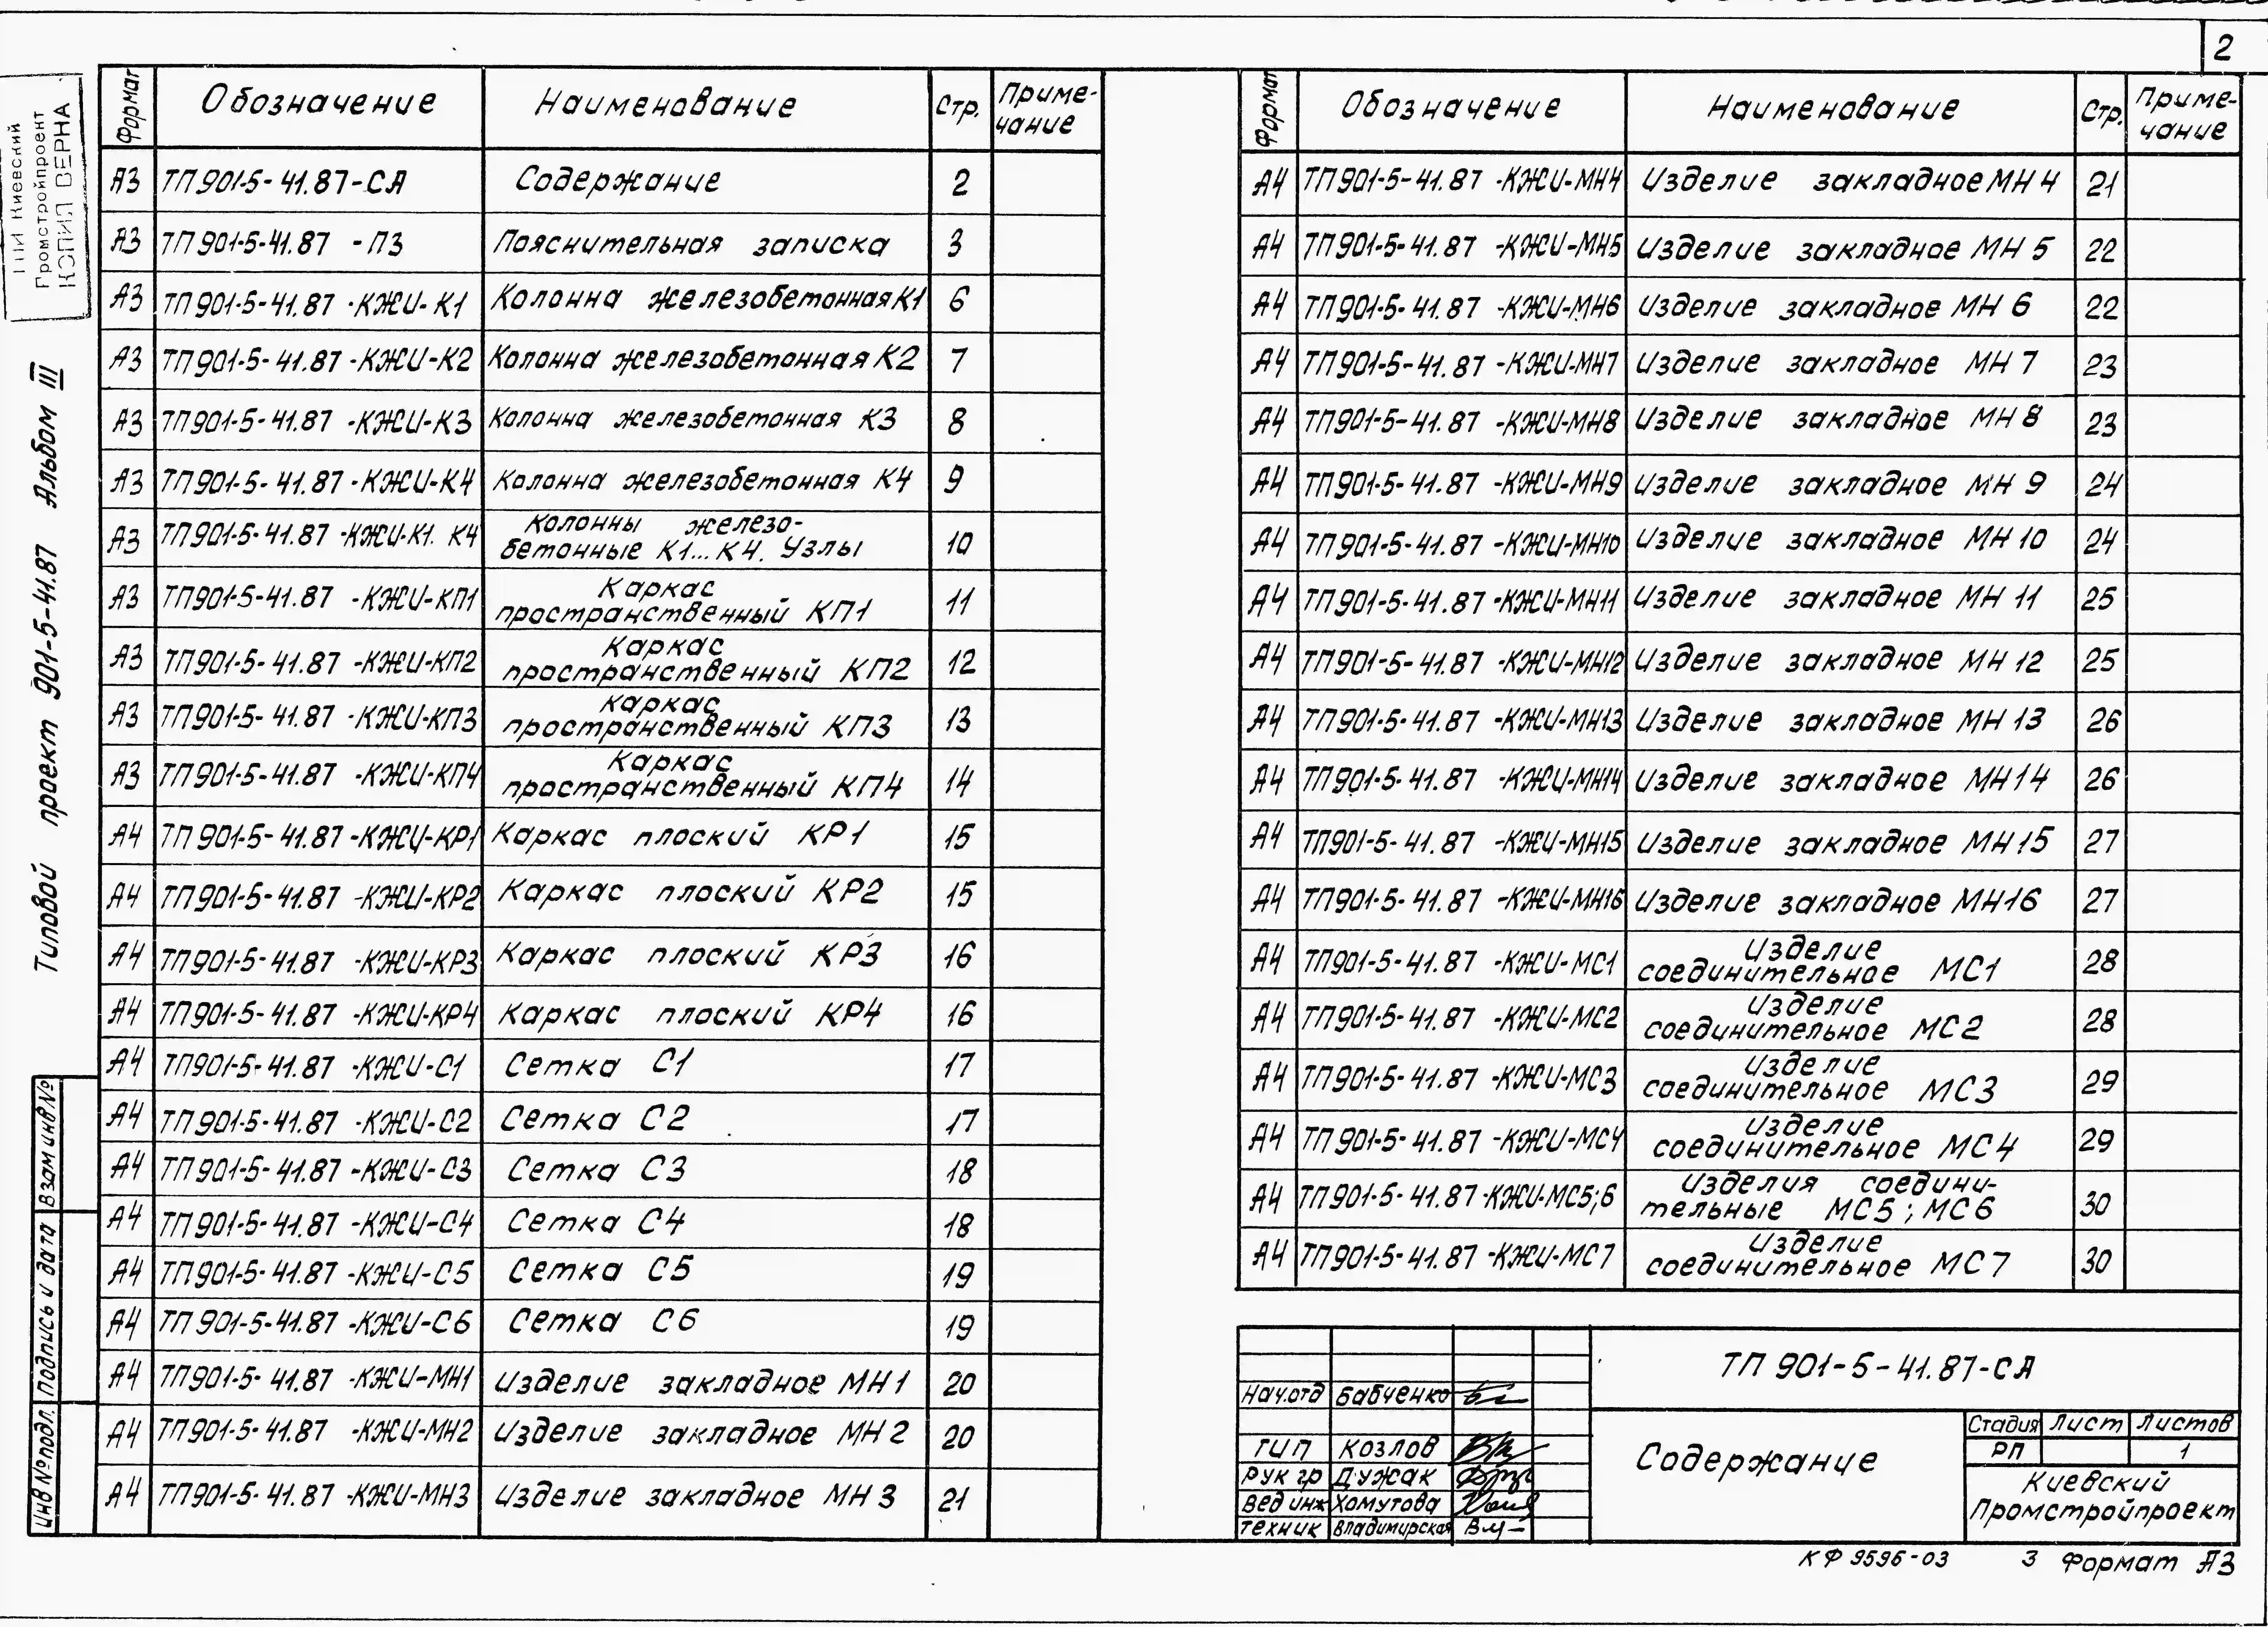 2
ГПИ Киевский
Промстройпроект
КОПИЯ ВЕРНА
Типовой проект 901-5-41.87 Альбом III
Взам инв №
Подпись и дата
Инв № подл.
Формат Обозначение Наименование Стр. Приме-
чание
А3 ТП901-5-41.87-СА Содержание 2
А3 ТП901-5-41.87 -ПЗ Пояснительная записка 3
А3 ТП901-5-41.87 -КЖИ-К1 Колонна железобетонная К1 6
А3 ТП901-5-41.87 -КЖИ-К2 Колонна железобетонная К2 7
А3 ТП901-5-41.87 -КЖИ-К3 Колонна железобетонная К3 8
А3 ТП901-5-41.87 -КЖИ-К4 Колонна железобетонная К4 9
А3 ТП901-5-41.87 -КЖИ-К1. К4 Колонны железо-
бетонные К1...К4. Узлы 10
А3 ТП901-5-41.87 -КЖИ-КП1 Каркас
пространственный КП1 11
А3 ТП901-5-41.87 -КЖИ-КП2 Каркас
пространственный КП2 12
А3 ТП901-5-41.87 -КЖИ-КП3 Каркас
пространственный КП3 13
А3 ТП901-5-41.87 -КЖИ-КП4 Каркас
пространственный КП4 14
А4 ТП901-5-41.87 -КЖИ-КР1 Каркас плоский КР1 15
А4 ТП901-5-41.87 -КЖИ-КР2 Каркас плоский КР2 15
А4 ТП901-5-41.87 -КЖИ-КР3 Каркас плоский КР3 16
А4 ТП901-5-41.87 -КЖИ-КР4 Каркас плоский КР4 16
А4 ТП901-5-41.87 -КЖИ-С1 Сетка С1 17
А4 ТП901-5-41.87 -КЖИ-С2 Сетка С2 17
А4 ТП901-5-41.87 -КЖИ-С3 Сетка С3 18
А4 ТП901-5-41.87 -КЖИ-С4 Сетка С4 18
А4 ТП901-5-41.87 -КЖИ-С5 Сетка С5 19
А4 ТП901-5-41.87 -КЖИ-С6 Сетка С6 19
А4 ТП901-5-41.87 -КЖИ-МН1 Изделие закладное МН1 20
А4 ТП901-5-41.87 -КЖИ-МН2 Изделие закладное МН2 20
А4 ТП901-5-41.87 -КЖИ-МН3 Изделие закладное МН3 21
Формат Обозначение Наименование Стр. Приме-
чание
А4 ТП901-5-41.87 -КЖИ-МН4 Изделие закладное МН4 21
А4 ТП901-5-41.87 -КЖИ-МН5 Изделие закладное МН5 22
А4 ТП901-5-41.87 -КЖИ-МН6 Изделие закладное МН6 22
А4 ТП901-5-41.87 -КЖИ-МН7 Изделие закладное МН7 23
А4 ТП901-5-41.87 -КЖИ-МН8 Изделие закладное МН8 23
А4 ТП901-5-41.87 -КЖИ-МН9 Изделие закладное МН9 24
А4 ТП901-5-41.87 -КЖИ-МН10 Изделие закладное МН10 24
А4 ТП901-5-41.87 -КЖИ-МН11 Изделие закладное МН11 25
А4 ТП901-5-41.87 -КЖИ-МН12 Изделие закладное МН12 25
А4 ТП901-5-41.87 -КЖИ-МН13 Изделие закладное МН13 26
А4 ТП901-5-41.87 -КЖИ-МН14 Изделие закладное МН14 26
А4 ТП901-5-41.87 -КЖИ-МН15 Изделие закладное МН15 27
А4 ТП901-5-41.87 -КЖИ-МН16 Изделие закладное МН16 27
А4 ТП901-5-41.87 -КЖИ-МС1 Изделие
соединительное МС1 28
А4 ТП901-5-41.87 -КЖИ-МС2 Изделие
соединительное МС2 28
А4 ТП901-5-41.87 -КЖИ-МС3 Изделие
соединительное МС3 29
А4 ТП901-5-41.87 -КЖИ-МС4 Изделие
соединительное МС4 29
А4 ТП901-5-41.87 -КЖИ-МС5;6 Изделия соедини-
тельные МС5; МС6 30
А4 ТП901-5-41.87 -КЖИ-МС7 Изделие
соединительное МС7 30
ТП 901-5-41.87-СА
Нач.отд Бабченко
ГИП Козлов
Рук гр Дужак
Вед инж Хомутова
Техник Владимирская
Содержание
Стадия Лист Листов
РП 1
Киевский
Промстройпроект
КФ 9596-03 3 Формат А3